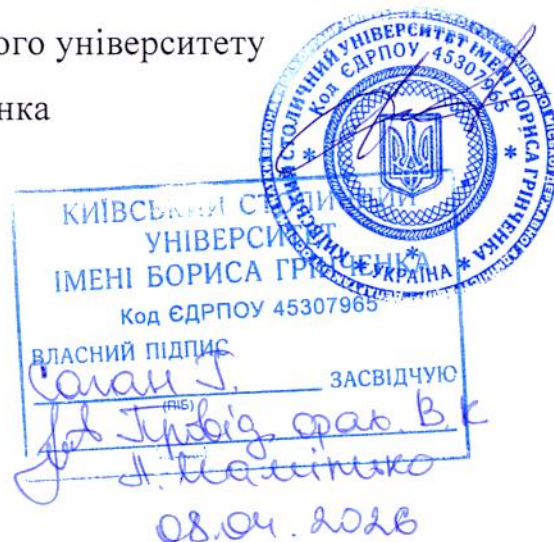 ого університету
нка
КИЇВСЬКИЙ СТОЛИЧНИЙ УНІВЕРСИТЕТ ІМЕНІ БОРИСА ГРІНЧЕНКА
* УКРАЇНА *
Код ЄДРПОУ 45307965
КИЇВСЬКИЙ СТОЛИЧНИЙ
УНІВЕРСИТЕТ
ІМЕНІ БОРИСА ГРІНЧЕНКА
Код ЄДРПОУ 45307965
ВЛАСНИЙ ПІДПИС
ЗАСВІДЧУЮ
(ПІБ)
Провід. фах. В.К
08.04.2026